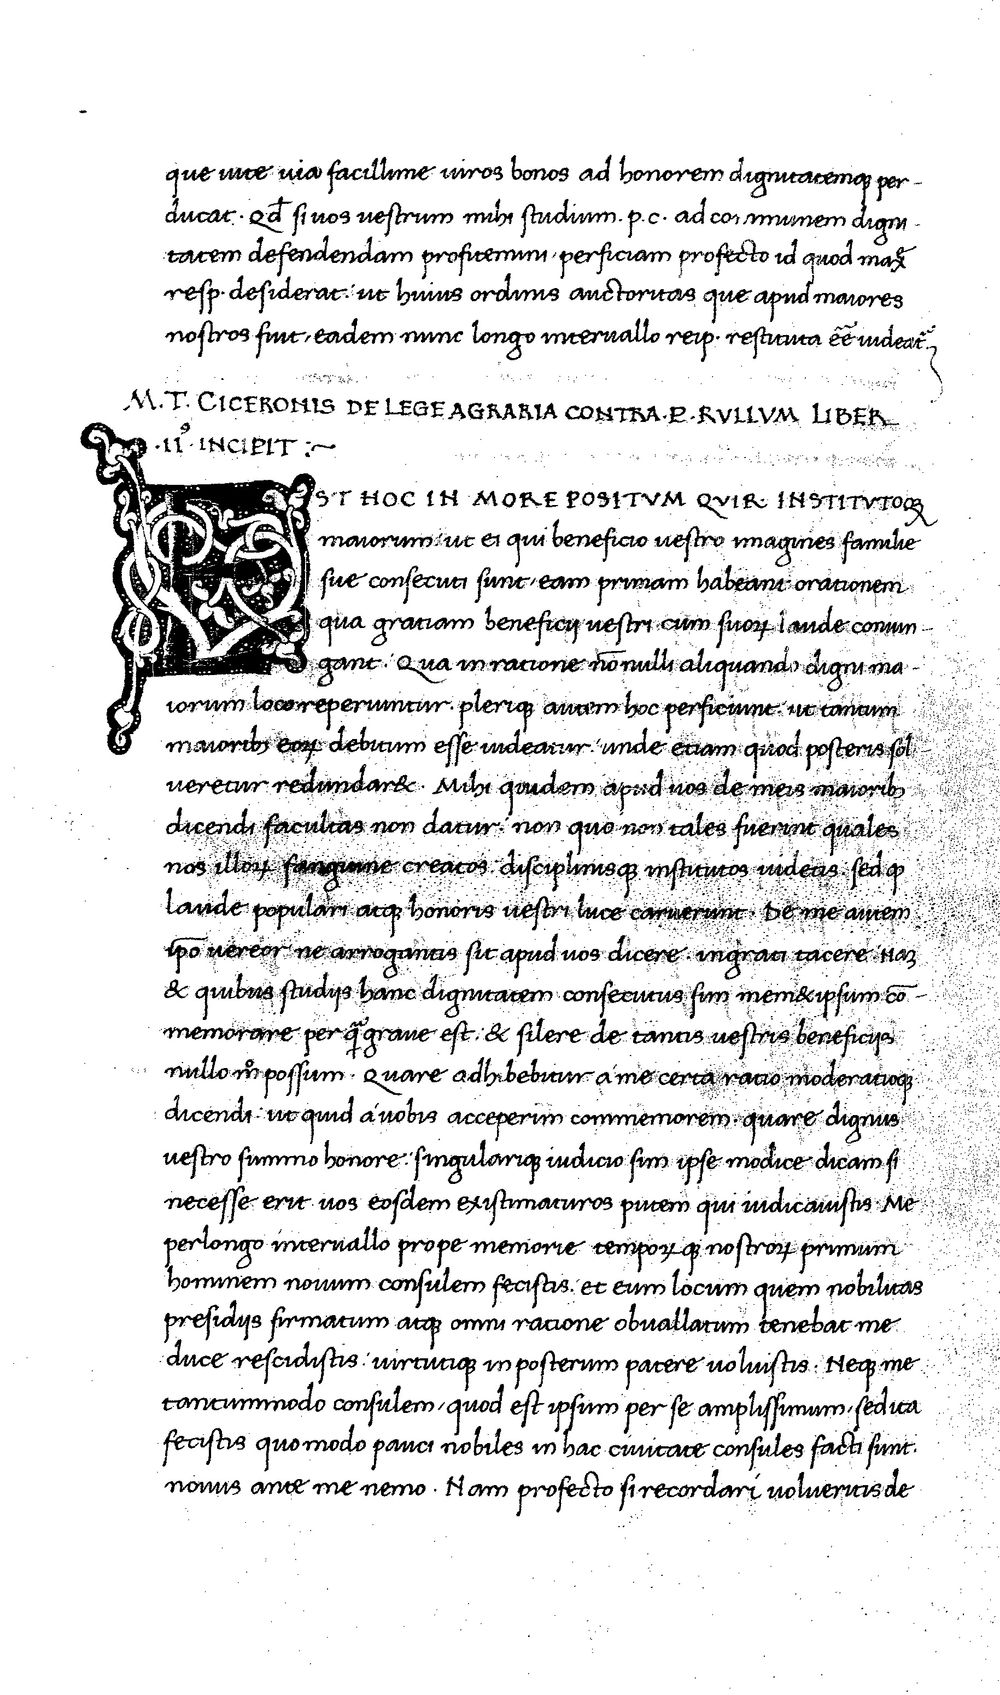 que uite uia facillime uiros bonos ad honorem dignitatemq; per-
ducat. Qd̄ si uos uestrum mihi studium .p.c. ad communem digni-
tatem defendendam profitemini, perficiam profecto id quod maxᷓ
resp. desiderat: ut huius ordinis auctoritas que apud maiores
nostros fuit, eadem nunc longo interuallo reip. restituta eē uideat̄.
M. T. CICERONIS DE LEGE AGRARIA CONTRA .P. RVLLVM LIBER
.II⁹ INCIPIT :~
EST HOC IN MORE POSITVM QVIR. INSTITVTOQ;
maiorum: ut ei qui beneficio uestro imagines familie
sue consecuti sunt, eam primam habeant orationem
qua gratiam beneficij uestri cum suoꝝ laude coniun-
gant. Qua in ratione nōnulli aliquando digni ma-
iorum loco reperiuntur. pleriq; autem hoc perficiunt. ut tantum
maiorib; eoꝝ debitum esse uideatur: unde etiam quod posteris sol
ueretur redundar&. Mihi quidem apud uos de meis maiorib;
dicendi facultas non datur: non quo non tales fuerint quales
nos illoꝝ sanguine creatos disciplinisq; institutos uidetis. sed ꝙ
laude populari atq; honoris uestri luce caruerunt. De me autem
ip̄o uereor ne arrogantis sit apud uos dicere. ingrati tacere. Naꝫ
& quibus studijs hanc dignitatem consecutus sim mem&ipsum cō-
memorare per qᷓ graue est. & silere de tantis uestris beneficijs
nullo mᵒ possum. Quare adhibebitur a me certa ratio moderatioq;
dicendi: ut quid a uobis acceperim commemorem. quare dignus
uestro summo honore: singulariq; iudicio sim ipse modice dicam si
necesse erit uos eosdem existimaturos putem qui iudicauistis. Me
perlongo interuallo prope memorie tempoꝝ q; nostroꝝ primum
hominem nouum consulem fecistis. et eum locum quem nobilitas
presidijs firmatum atq; omni ratione obuallatum tenebat me
duce rescidistis: uirtutiq; in posterum patere uoluistis. Neq; me
tantummodo consulem, quod est ipsum per se amplissimum, sed ita
fecistis quomodo pauci nobiles in hac ciuitate consules facti sunt.
nouus ante me nemo. Nam profecto si recordari uolueritis de